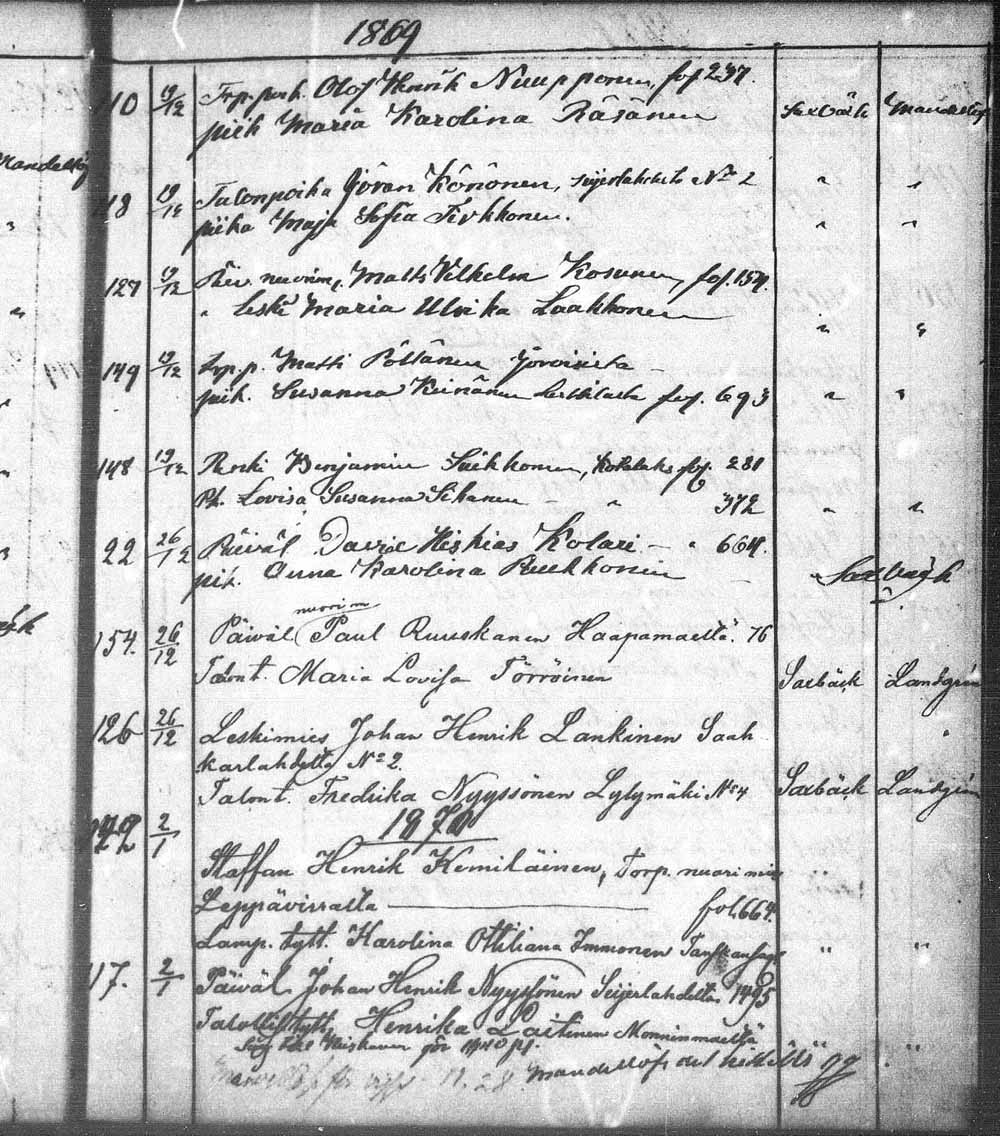 1869
110 19/12 Trp.poik. Olof Henrik Nuupponen, fof 237. Saxbäck Mandellöf
piik Maria Karolina Räsänen
118 19/12 Talonpoika Göran Könönen, Seijerlahdelta No 2 " "
piika Maja Sofia Tirkkonen. " "
127 19/12 Matts Vilhelm Kosunen, fof. 154.
" Leski Maria Ulrika Laakkonen " "
149 19/12 Trp.p. Matti Pöllänen Joroisista
piik. Susanna Keinänen fof. 693 " "
148 19/12 Renki Benjamin fof. 281
Pk. Lovisa Susanna Sikanen " 372 " "
22 26/12 Päiväl David Hiskias Kolari " 664.
pik. Anna Karolina Saxbäck
nuorim
154. 26/12 Päiväl Paul Ruuskanen Haapamaeltä. 76
Talont. Maria Lovisa Törröinen Saxbäck Landgrén
126 26/12 Leskimies Johan Henrik Lankinen Saah "
karlahdelta No 2.
Talont. Fredrika Nyyssönen Lylymäki No 4 Saxbäck Landgrén
1870
2/1
Staffan Henrik Kemiläinen, Torp. nuorimies "
Leppävirralta fol. 664.
Lamp. tytt. Karolina Ottiliana Immonen " "
117. 2/1 Päiväl. Johan Henrik Nyyssönen Seijerlahdelta 1495
Talollis tytt. Henrika Laitinen Monninmaelta "
Mandellöfs det